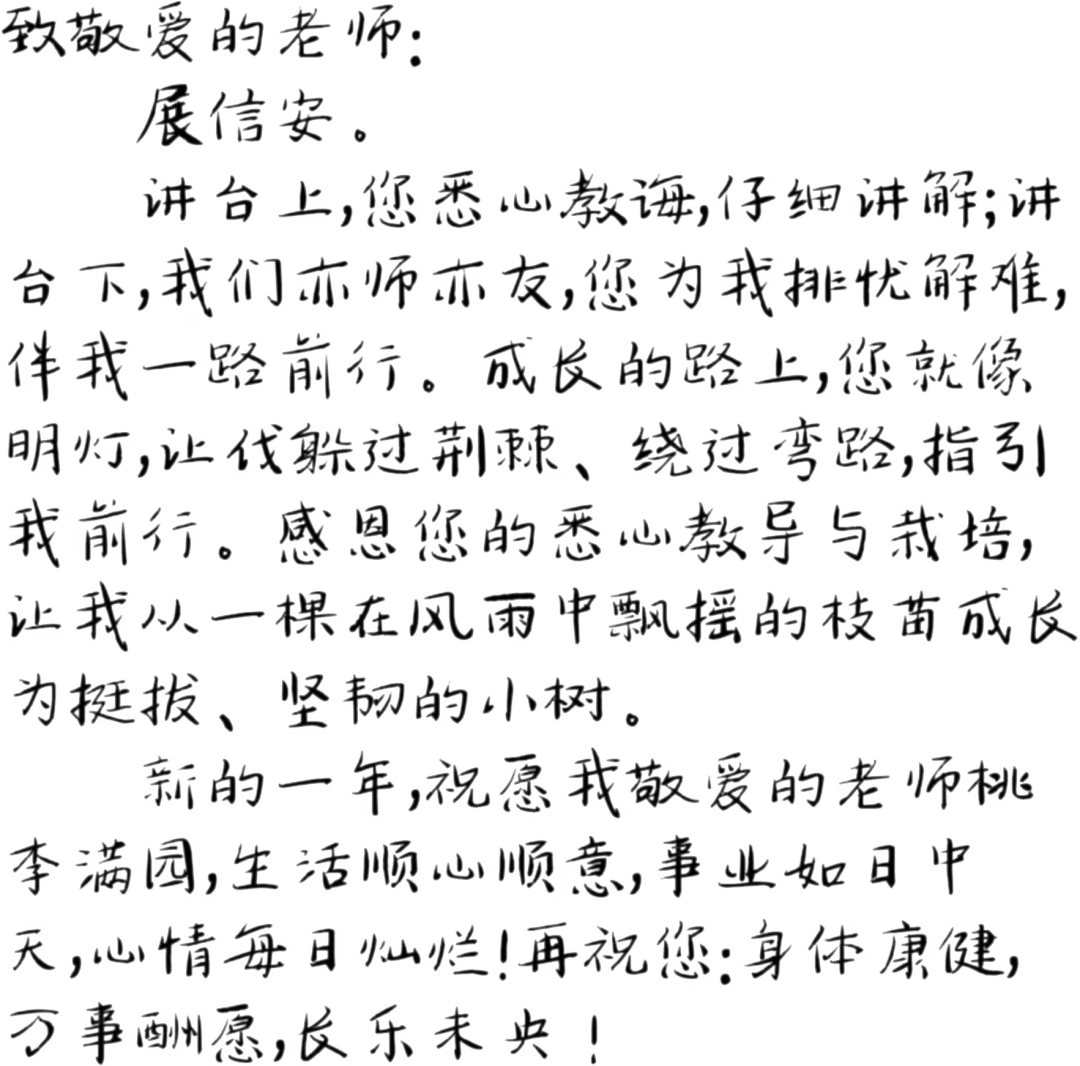 致敬爱的老师:
展信安。
讲台上,您悉心教诲,仔细讲解;讲
台下,我们亦师亦友,您为我排忧解难,
伴我一路前行。成长的路上,您就像
明灯,让伐躲过荆棘、绕过弯路,指引
我前行。感恩您的悉心教导与栽培,
让我从一棵在风雨中飘摇的枝苗成长
为挺拔、坚韧的小树。
新的一年,祝愿我敬爱的老师桃
李满园,生活顺心顺意,事业如日中
天,心情每日灿烂!再祝您:身体康健,
万事酬愿,长乐未央!